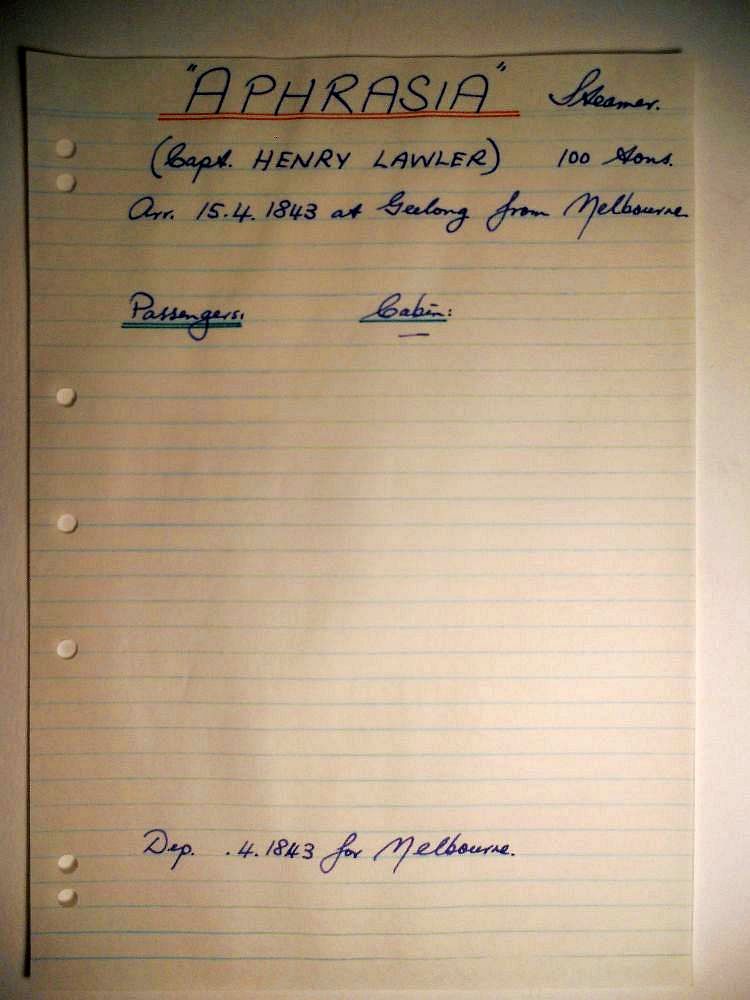 "APHRASIA" Steamer.
(Capt. HENRY LAWLER) 100 tons.
Arr. 15.4.1843 at Geelong from Melbourne
Passengers: Cabin:
Dep. .4.1843 for Melbourne.